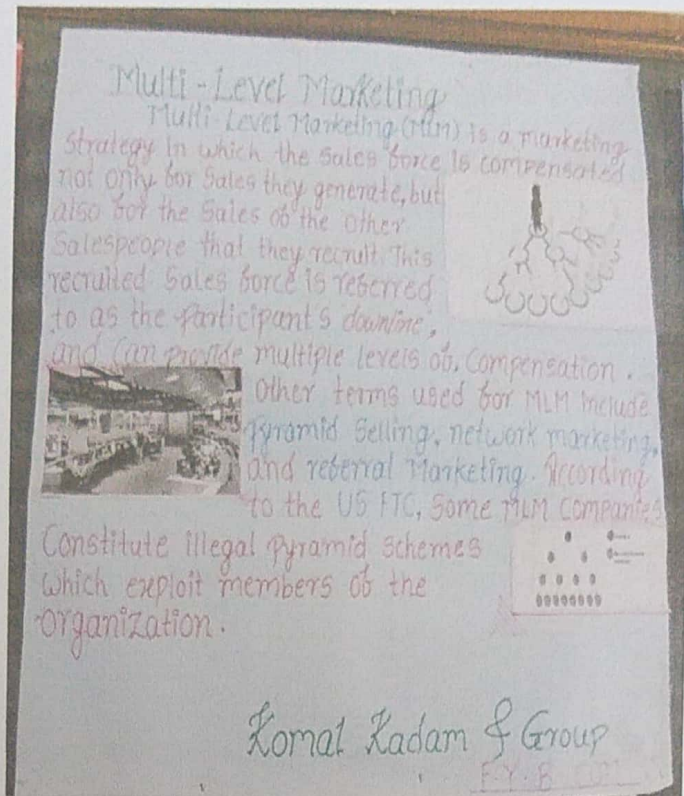 Multi-Level Marketing
Multi-Level Marketing (MLM) is a marketing
Strategy in which the sales force is compensated
not only for Sales they generate, but
also for the Sales of the other
Salespeople that they recruit. This
recruited Sales force is referred
to as the Participant's downline,
and Can provide multiple levels of. Compensation.
Other terms used for MLM include
Pyramid Selling, network marketing,
and referral Marketing. According
to the US FTC, Some MLM Companies
Constitute illegal Pyramid Schemes
which exploit members of the
Organization.
Komal Kadam & Group
F.Y.B.